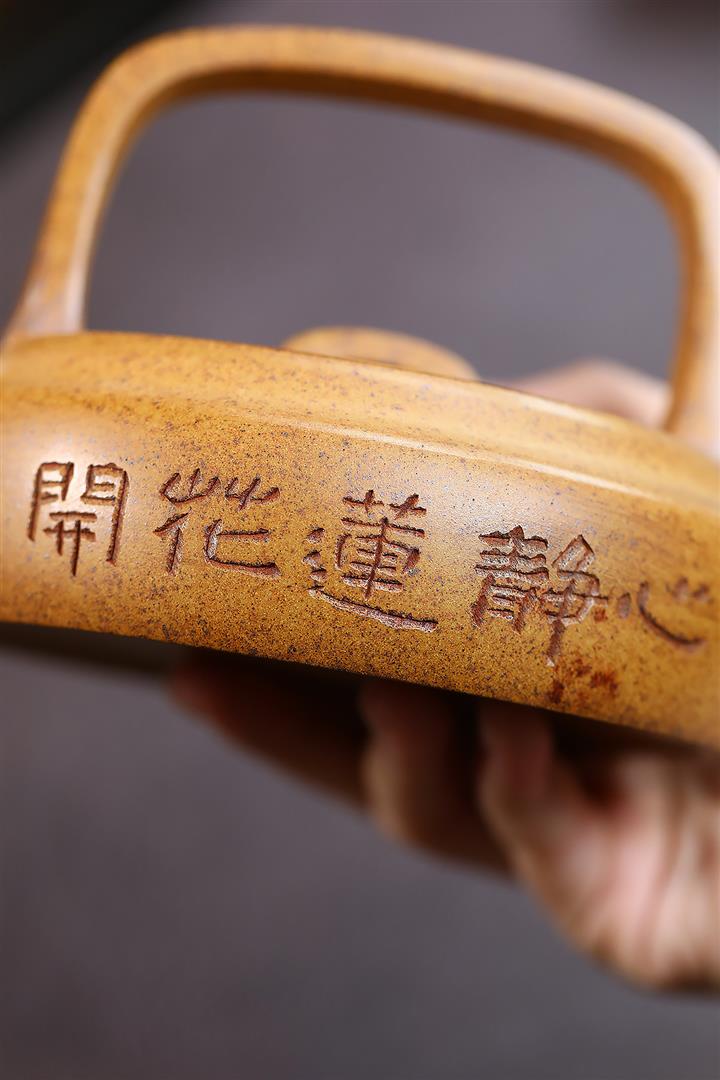 心靜蓮花開